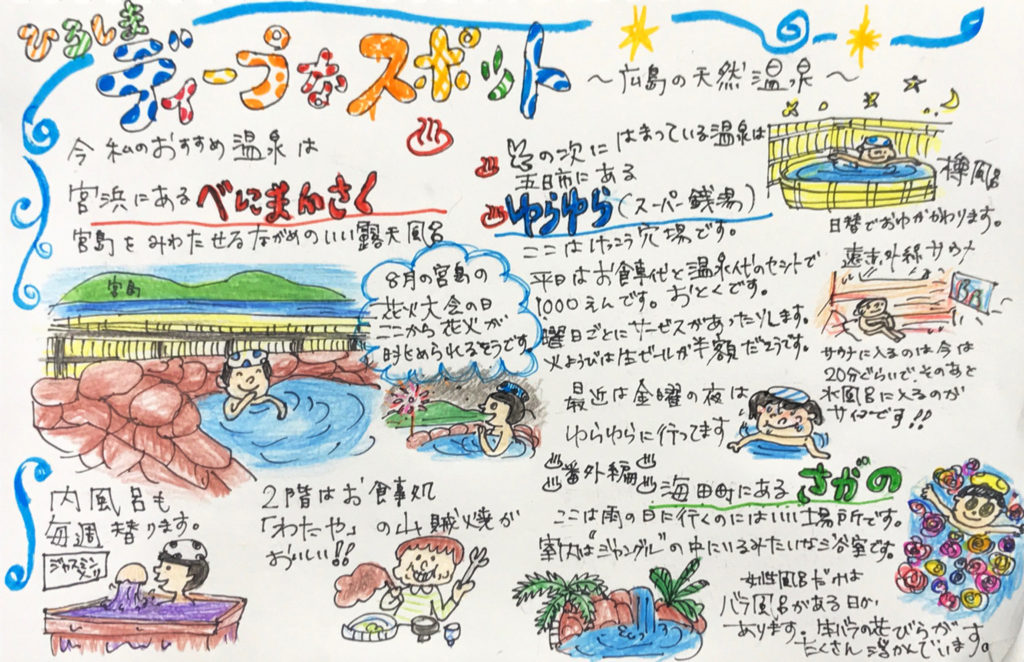 ひろしま
ディープなスポット
〜広島の天然温泉〜
今私のおすすめ温泉は
宮浜にあるべにまんさく
宮島をみわたせるながめのいい露天風呂
宮島
8月の宮島の
花火大会の日
ここから花火が
ながめられるそうです
内風呂も
毎週替ります。
ジャスミン
2階はお食事処
「わたや」の山賊焼が
おいしい!!
の次にはまっている温泉は
五日市にある
ゆらゆら(スーパー銭湯)
ここはけっこう穴場です。
平日はお食事代と温泉代のセットで
1000えんです。おとくです。
曜日ごとにサービスがあったりします。
火ようびは生ビールが半額だそうです。
最近は金曜の夜は
ゆらゆらに行ってます
樽風呂
日替でおゆがかわります。
遠赤外線サウナ
サウナに入るのは今は
20分ぐらいでそのあと
水風呂に入るのが
サイコーです!!
番外編
海田町にあるさがの
ここは雨の日に行くのにはいい場所です。
室内"ジャングル"の中にいるみたいな浴室です。
女性風呂だけは
バラ風呂がある日が
あります。生バラの花びらが
たくさん浮かんでいます。